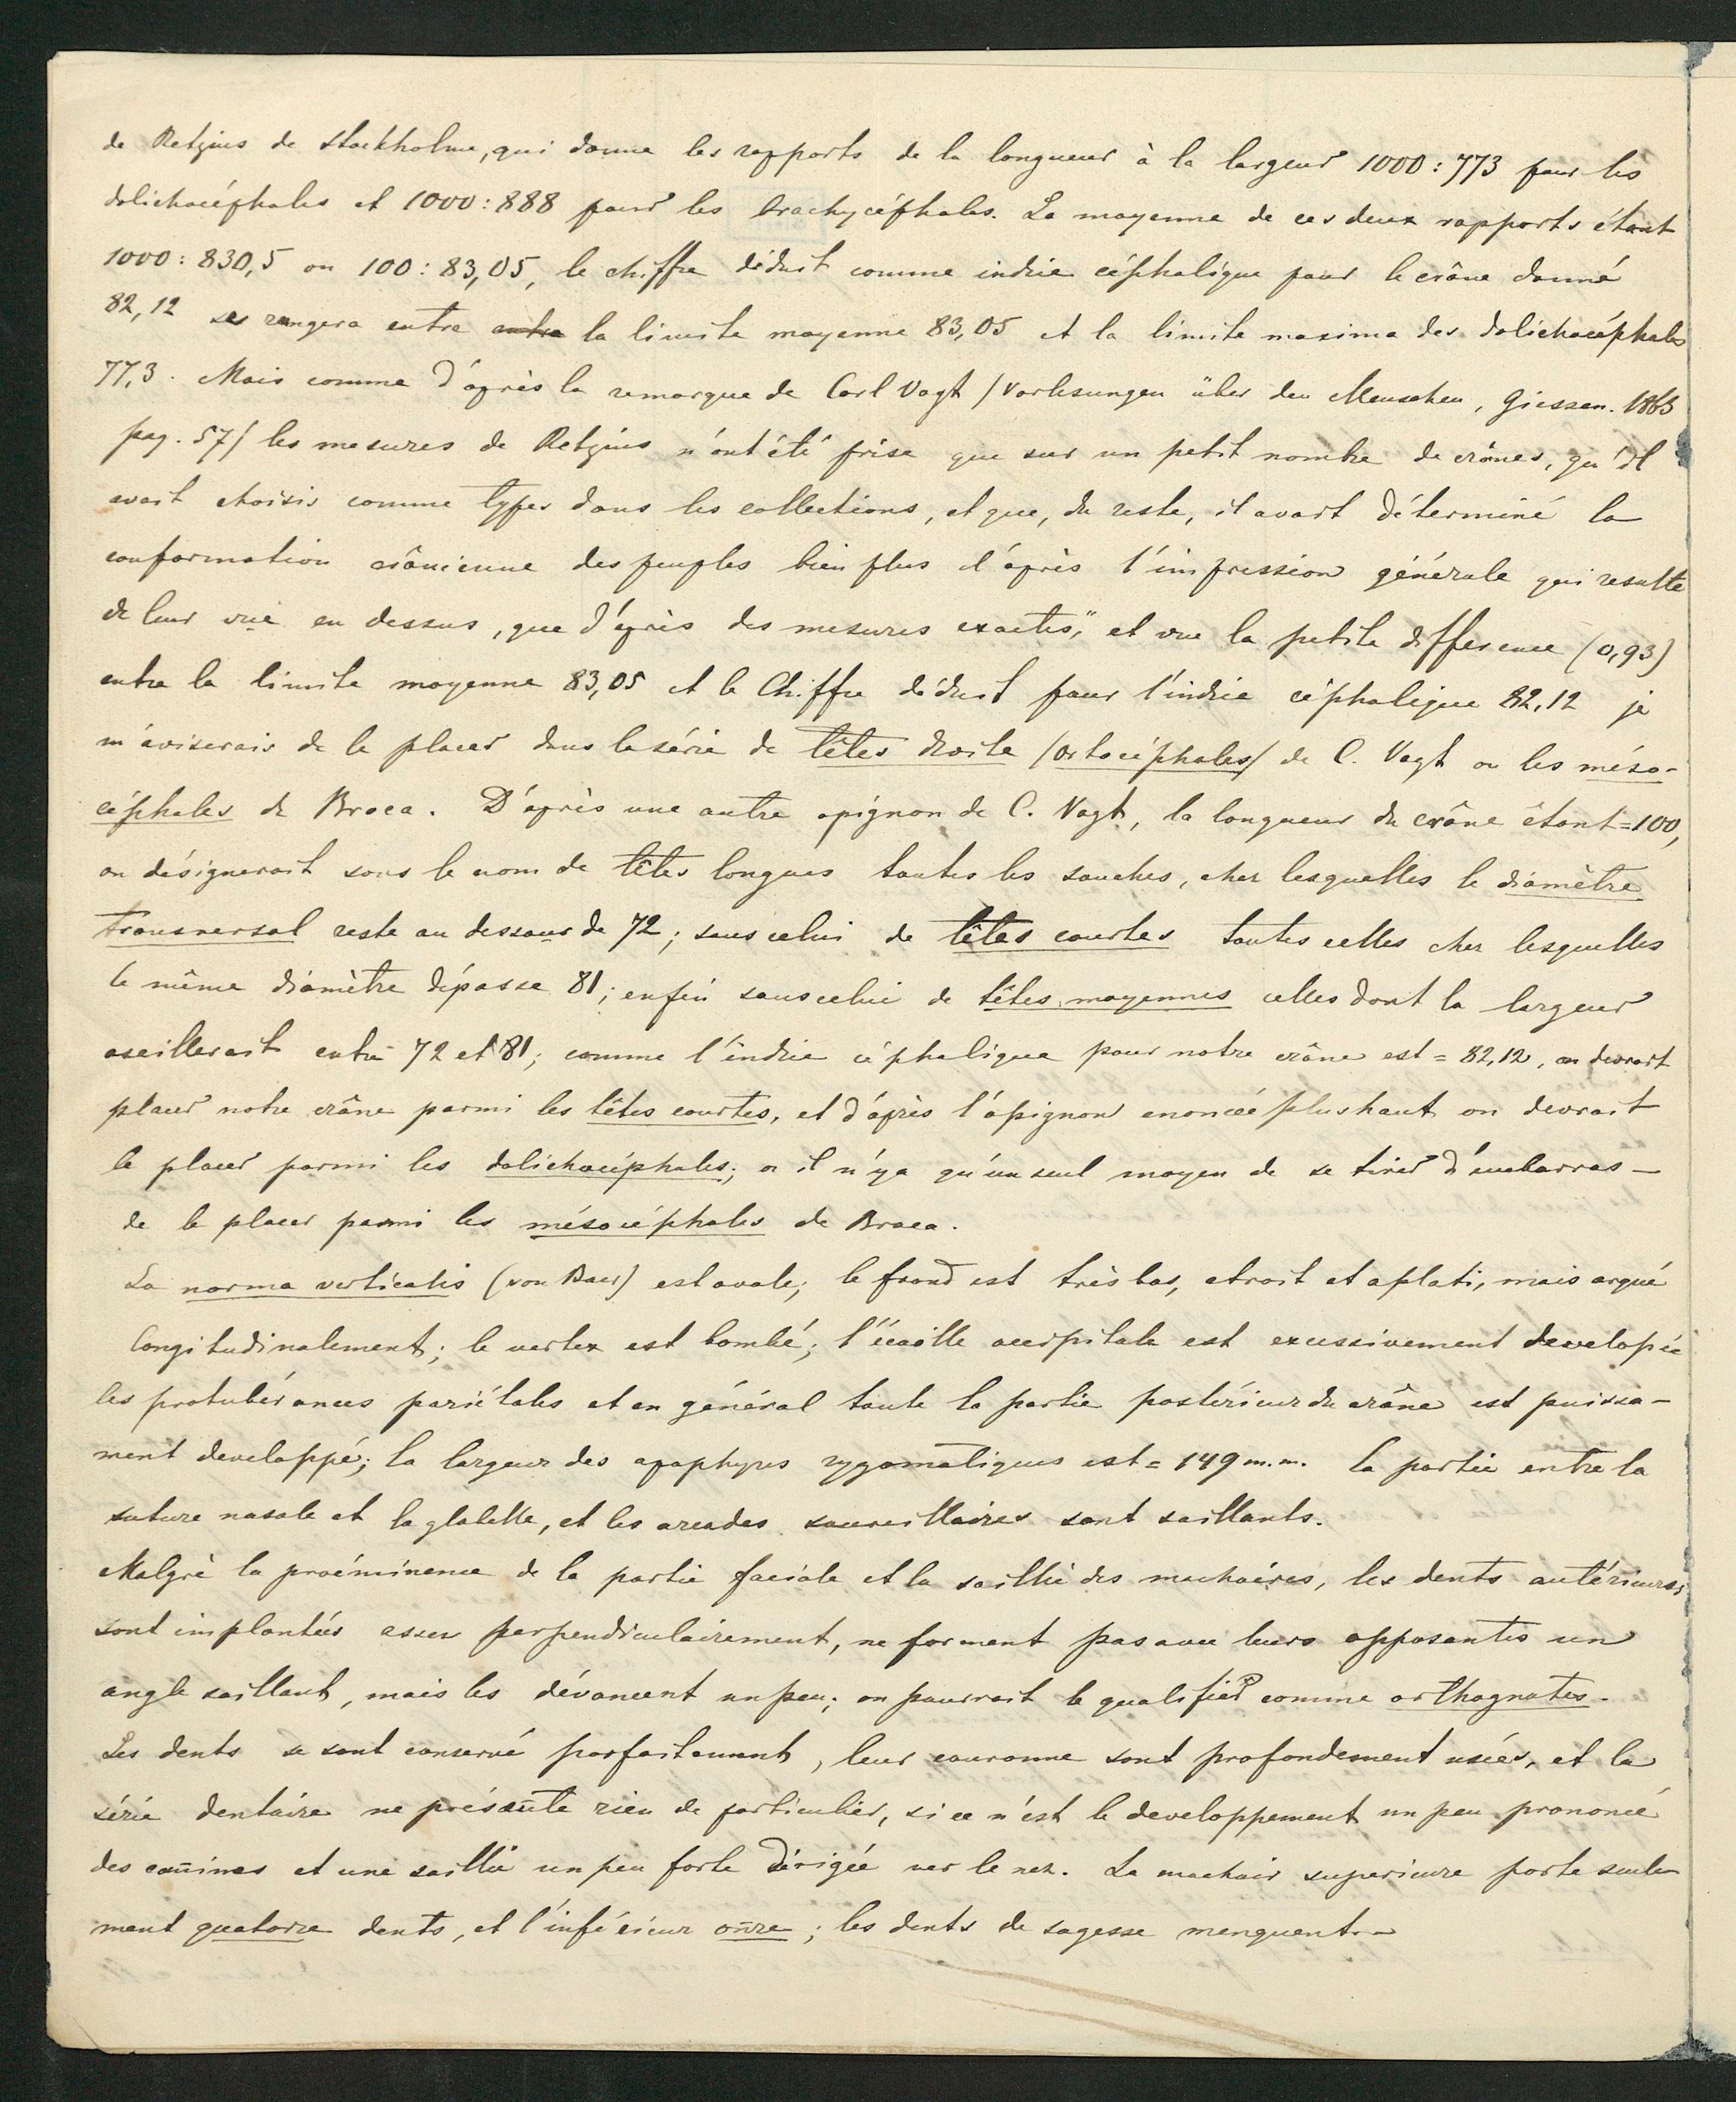 de Retzius de Stockholme, qui donne les rapports de la longueur à la largeur 1000 : 773 pour les
dolichocéphales et 1000 : 888 pour les brachycéphales. La moyenne de ces deux rapports étant
1000 : 830,5 ou 100 : 83,05, le chiffre déduit comme indice céphalique pour le crâne donné
82,12 se rangera entre entre la limite moyenne 83,05 et la limite maxima des dolichocéphales
77,3. Mais comme d'après la remarque de Carl Vogt /Vorlesungen über den Menschen, Giessen. 1863
pag. 57/ les mesures de Retzius n'ont été prise que sur un petit nombre de crânes, qu'il
avait choisis comme types dans les collections, et que, du reste, il avait déterminé la
conformation crânienne des peuples bien plus d'après l'impression générale qui resulte
de leur vue en dessus, que d'après des mesures exactes," et vue la petite difference (0,93)
entre la limite moyenne 83,05 et le Chiffre déduit pour l'indice céphalique 82,12 je
m'aviserais de le placer dans la série de têtes droite /ortocéphales/ de C. Vogt ou les méso-
céphales de Broca. D'après une autre opignon de C. Vogt, la longueur du crâne étant = 100,
on désignerait sous le nom de têtes longues toutes les souches, cher lesquelles le diamètre
transversal reste au dessous de 72; sous celui de têtes courtes toutes celles cher lesquelles
le même diamètre dépasse 81; enfin sous celui de têtes moyennes celles dont la largeur
oscillerait entre 72 et 81; comme l'indice céphalique pour notre crâne est = 82,12, on devrait
placer notre crâne parmi les têtes courtes, et d'après l'opignon enoncée plus haut on devrait
le placer parmi les dolichocéphales; or il n'ya qu'un seul moyen de se tirer d'embarras —
de le placer parmi les mésocéphales de Broca.
La norma verticalis (von Baer) est ovale; le frond est très bas, etroit et aplati, mais arqué
longitudinalement; le vertex est bombé; l'écaille occipitale est excessivement developée
les protubérances pariétales et en général toute la partie postérieur du crâne est puissa-
ment developpé; la largeur des apophyses zygomatiques est = 149 m.m. La partie entre la
suture nasale et la glabelle, et les arcades sourcillaires sont saillants.
Malgrè la proéminence de la partie faciale et la saillie des machoires, les dents antérieures
sont implantées asser perpendiculairement, ne forment pas avec leurs opposantes un
angle saillant, mais les dévancent un peu; on pourrait le qualifier comme orthognates.
Les dents se sont conservé parfaitement, leur couronne sont profondement usées, et la
série dentaire ne présente rien de particulier, si ce n'est le developpement un peu prononcé
des canines et une saillie un peu forte dirigée ver le nez. La machoir superieure porte seule-
ment quatorze dents, et l'inférieur onze; les dents de sagesse menquent. —